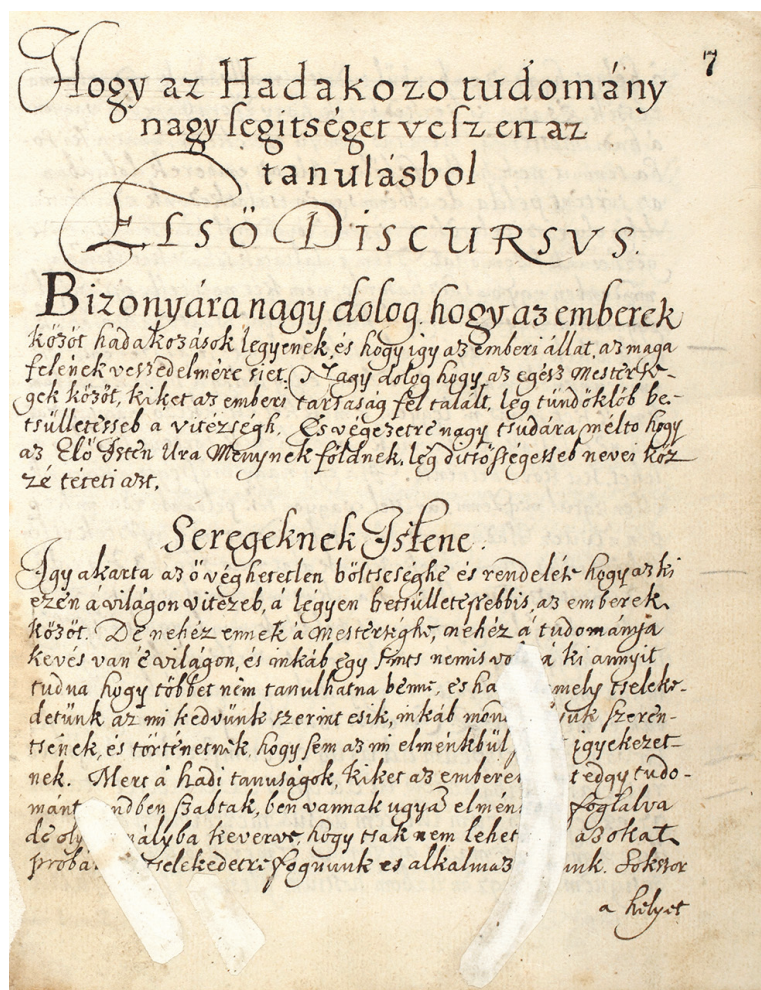 7
Hogy az Hadakozo tudomány
nagy segitséget veszen az
tanulásbol
ELSÖ DISCURSVS.
Bizonyára nagy dolog, hogy az emberek
között hadakozások legyenek, és hogy igy az emberi állat, az maga
felének veszedelmére siet. Nagy dolog hogy, az egész Mesterse-
gek között, kiket az emberi tarsaság fel talált, leg tündöklöb be-
tsülletesseb a vitézségh. És végezetre nagy tsudára mélto hogy
az Elö Isten Ura Menynek földnek, leg ditsösségesseb nevei köz
zé téteti azt.
Seregeknek Istene.
Igy akarta az ö véghetetlen böltseséghe és rendelék hogy az ki
ezen á világon vitezeb, á légyen betsülletessebbis, az emberek
között. De nehéz ennek á Mesterséghe, nehéz á tudománja
kevés van é világon, és inkáb egy sints nemis vo á ki annyit
tudna hogy többet nem tanulhatna benne, és ha mely tseleke-
detünk az mi kedvünk szerint esik, inkáb mon juk szeren-
tsének, és történetnek, hogy sem az mi elménkbül jgyekezet-
nek. Mert á hadi tanuságok, kiket az embere t edgy tudo-
mánt ndben szabtak, ben vannak ugyan elmén foglalva
de oly mályba keverve, hogy tsak nem lehet azokat
proba tselekedetre fognunk es alkalmaz unk. Sokszor
a helyet